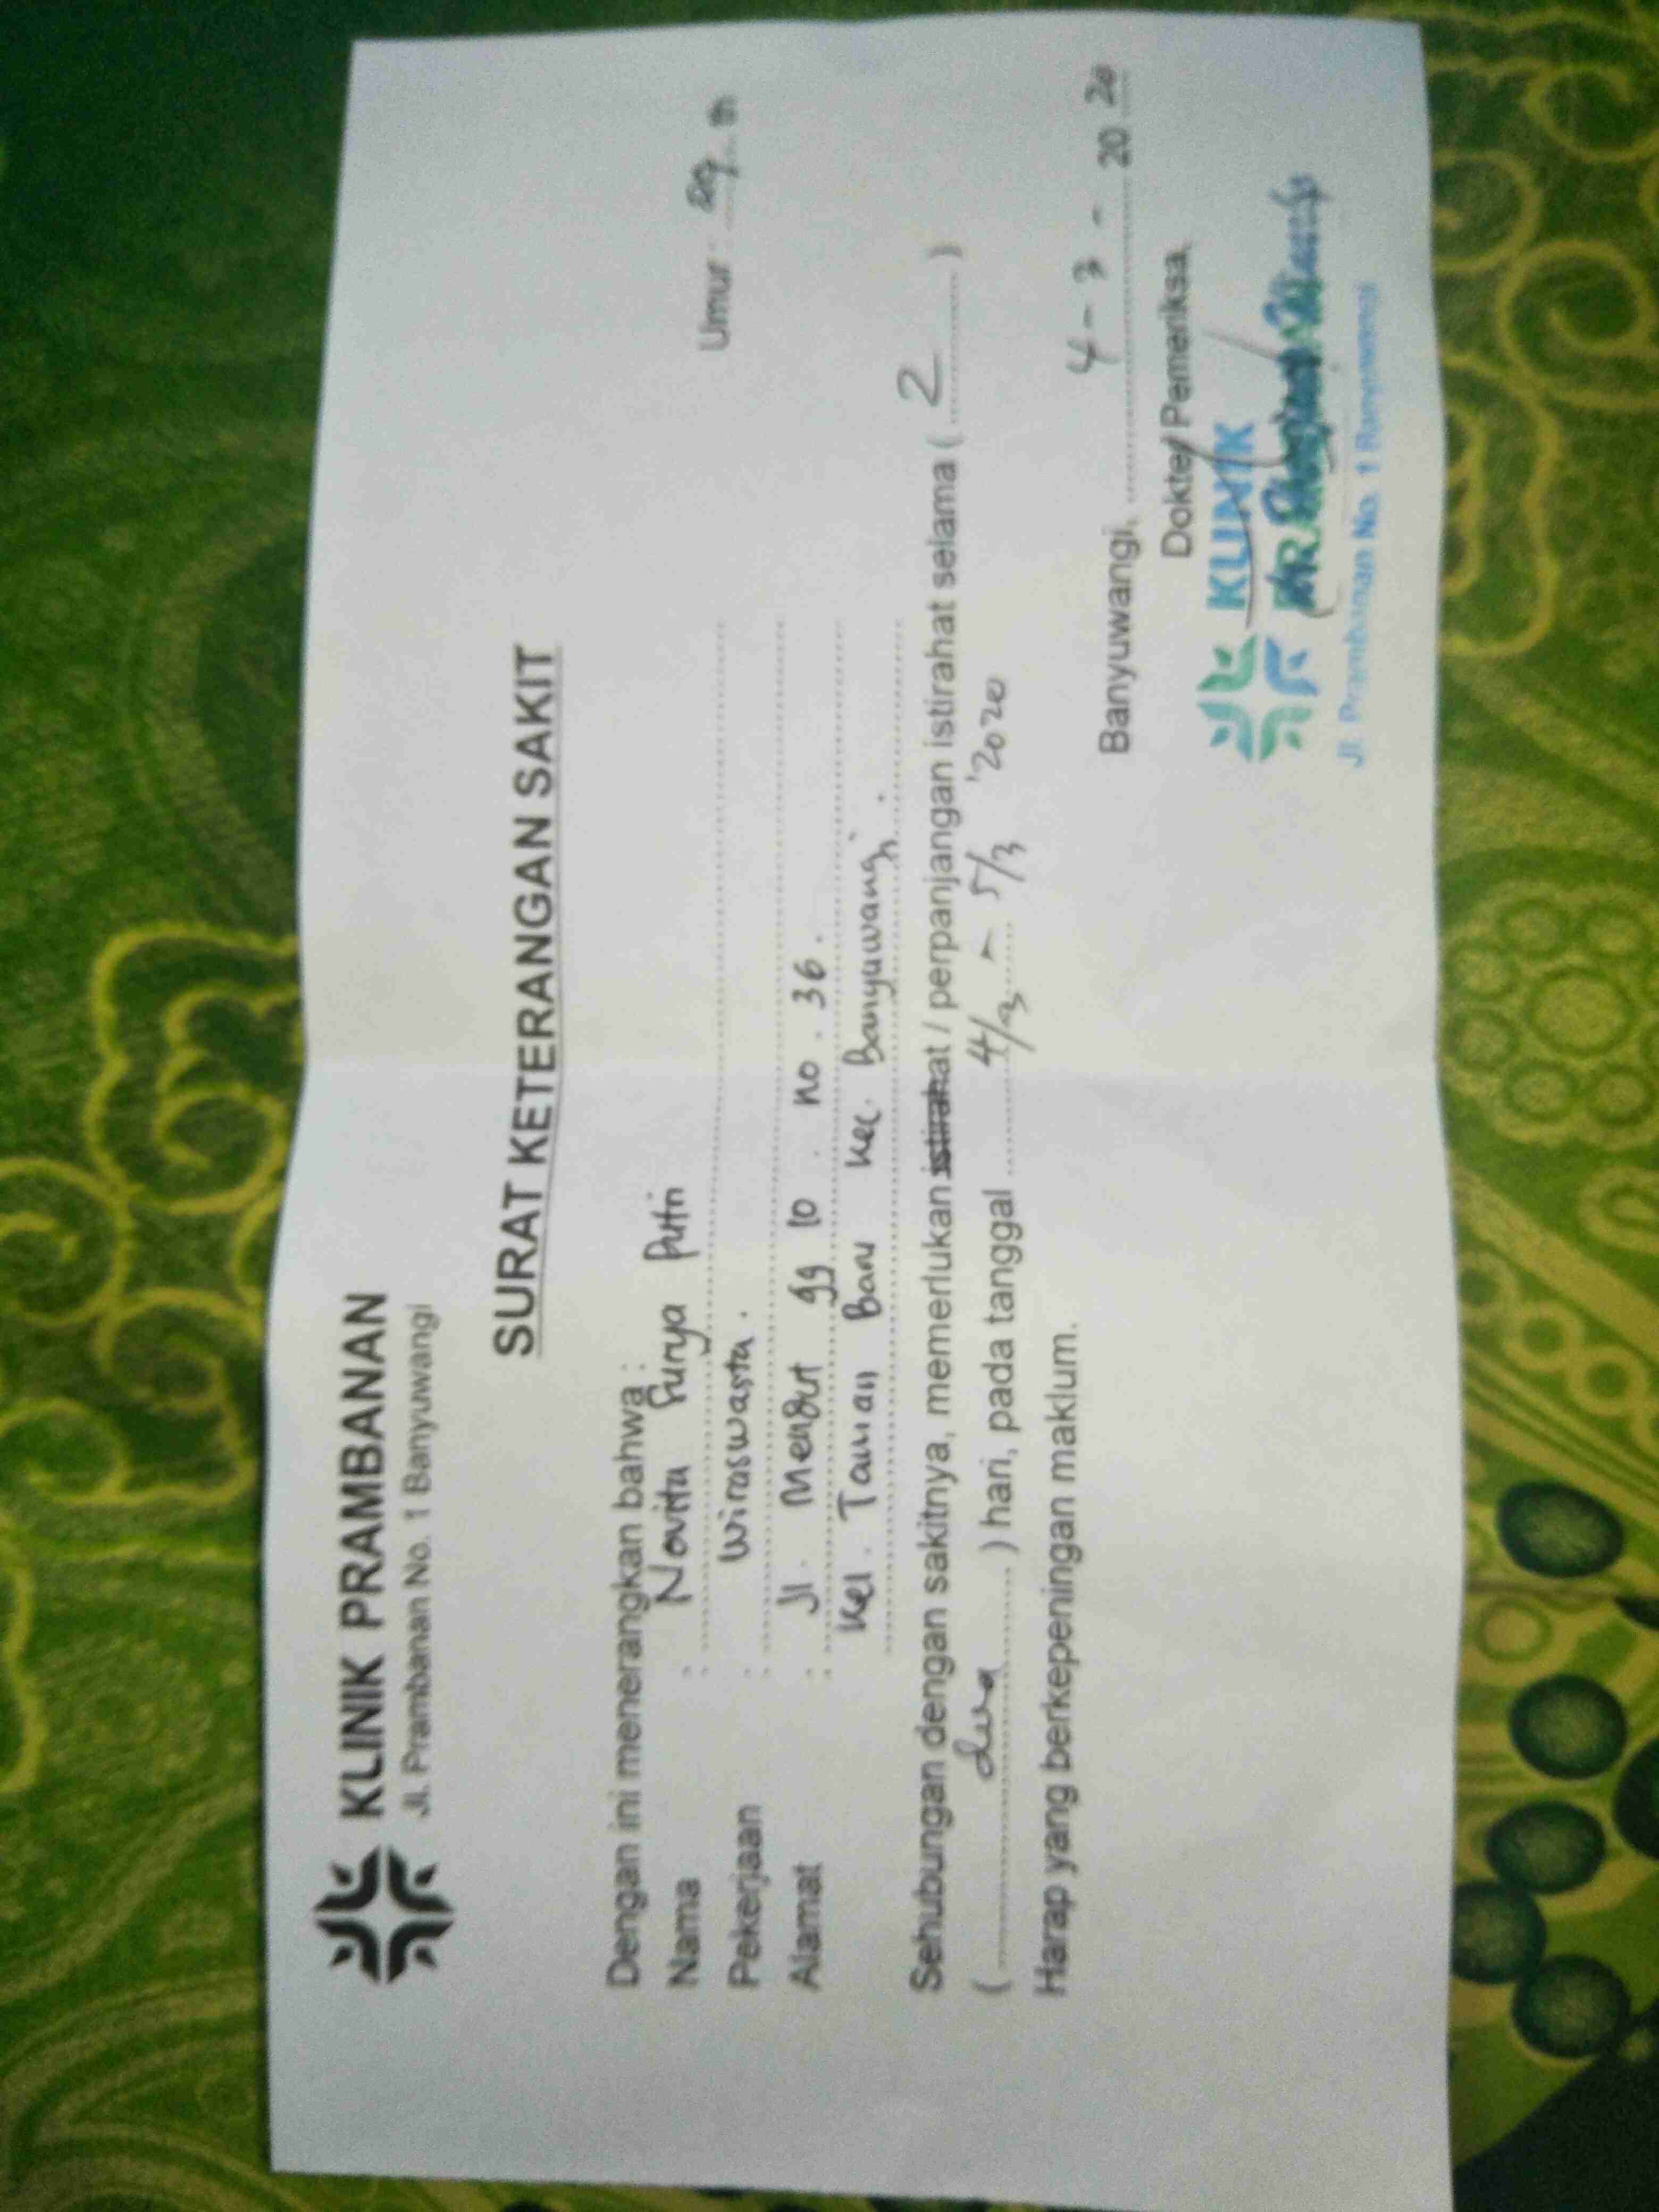 KLINIK PRAMBANAN
Jl. Prambanan No. 1 Banyuwangi
SURAT KETERANGAN SAKIT
Dengan ini menerangkan bahwa :
Nama : Novita Surya Putri Umur : th
Pekerjaan : Wiraswasta.
Alamat : Jl. Mendut gg 10 . no . 36 .
Kel . Taman Baru Kec. Banyuwangi .
Sehubungan dengan sakitnya, memerlukan istirahat / perpanjangan istirahat selama ( 2 )
( dua ) hari, pada tanggal 4/3 - 5/3 '2020
Harap yang berkepeningan maklum.
Banyuwangi, 4 - 3 - 20 20
Dokter/ Pemeriksa,
KLINIK
Jl. Prambanan No. 1 Banyuwangi